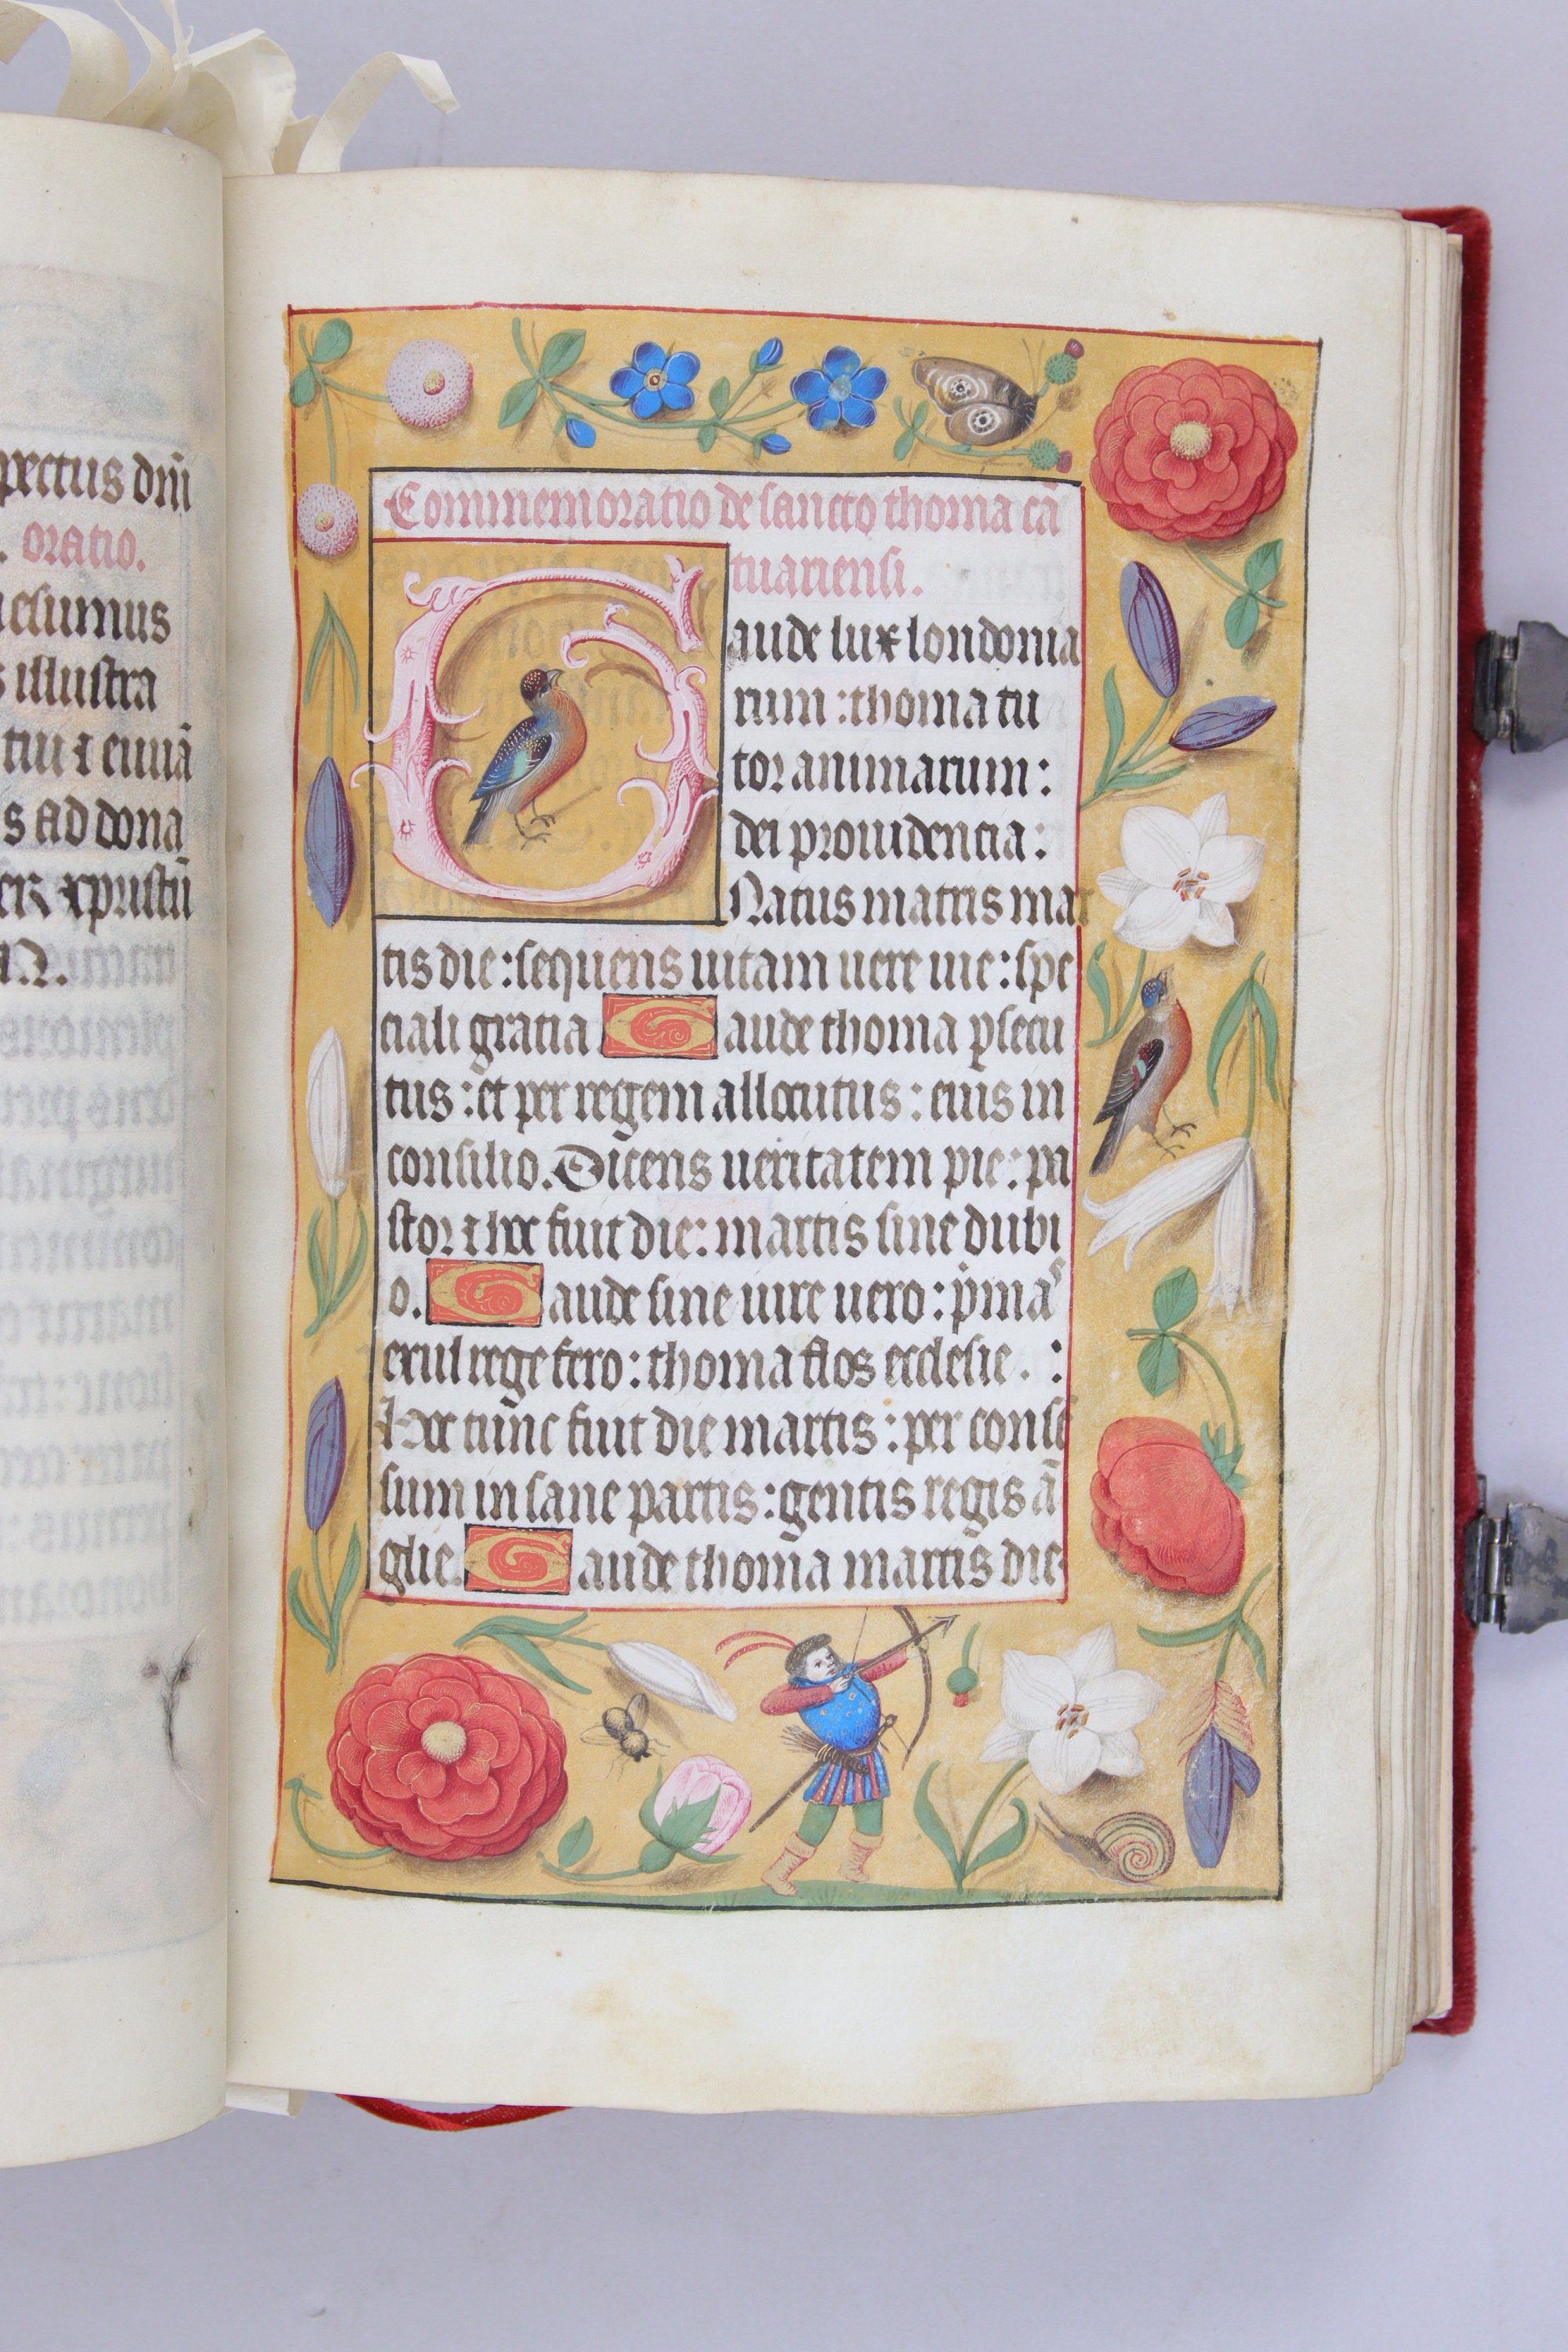 pectus dñi
. oratio.
esumus
s illustra
tiu ⁊ euuā
s ad dona
xpristū
Commemoratio de sancto thoma cā
tuariensi.
Gaude lux londonia
rum : thoma tu
tor animarum :
dei prouidencia :
Natus matris mar
tis die : sequens uitam uere uie : spe
ciali gratia Gaude thoma ꝑsecu
tus : et per regem allocutus : eius in
consilio. Dicens ueritatem pie : pa
stor ⁊ hec fuit die : martis sine dubi
o. Gaude sine uire uero : p̍maˢ
exul rege fero : thoma flos ecclesie . :
Hec tunc fuit die martis : per conse
sum in sane partis : gentis regis ā
glie. Gaude thoma martis die